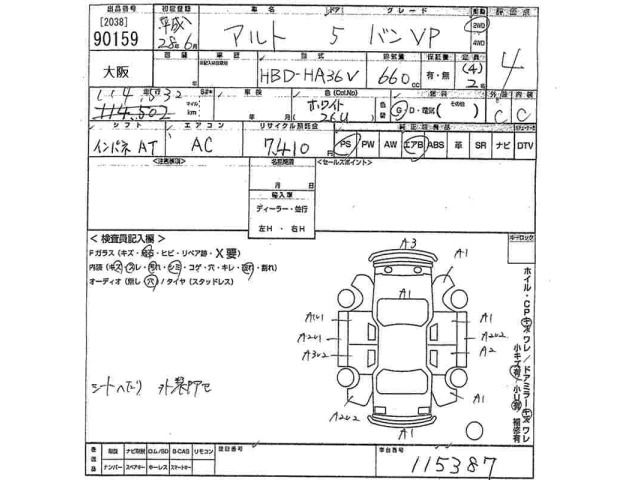 出品番号 初度登録 車名 ドア グレード 駆動 評価点
[2038] 平成 2WD
90159 28年6月 アルト 5 バンVP 4WD 4
型式 排気量 保証書 定員
大阪 HBD-HA36V 660cc 有・無 (4) 2名 外装 内装
車検 色(Col.No) 燃料
114,032 マイル ホワイト
114,502 km 年 月 26U G・D・電気( その他 ) C C
シフト エアコン リサイクル預託金 純正装備品
インパネAT AC 7,410 PS PW AW エアB ABS 革 SR ナビ DTV
<注意事項> 名変期限 <セールスポイント>
月 日
輸入車
ディーラー・並行
左H・右H
<検査員記入欄> キーロック
Fガラス(キズ・飛石・ヒビ・リペア跡・X要)
内装(キズ・スレ・汚れ・シミ・コゲ・穴・キレ・割れ)
オーディオ(別し・穴)/タイヤ(スタッドレス)
A3
A1
A1
A1
A1
A2U1 A2U2
A3U2 A2
A1
A1
A2U2
A1
シートヘタリ
ホイル・CPキズワレ/ドアミラーキズワレ
小キズ有/小U有 補修有
取説 ナビ取説 B-CAS リモコン 登録番号 車台番号
ナンバー スペアキー キーレス スマートキー 115387